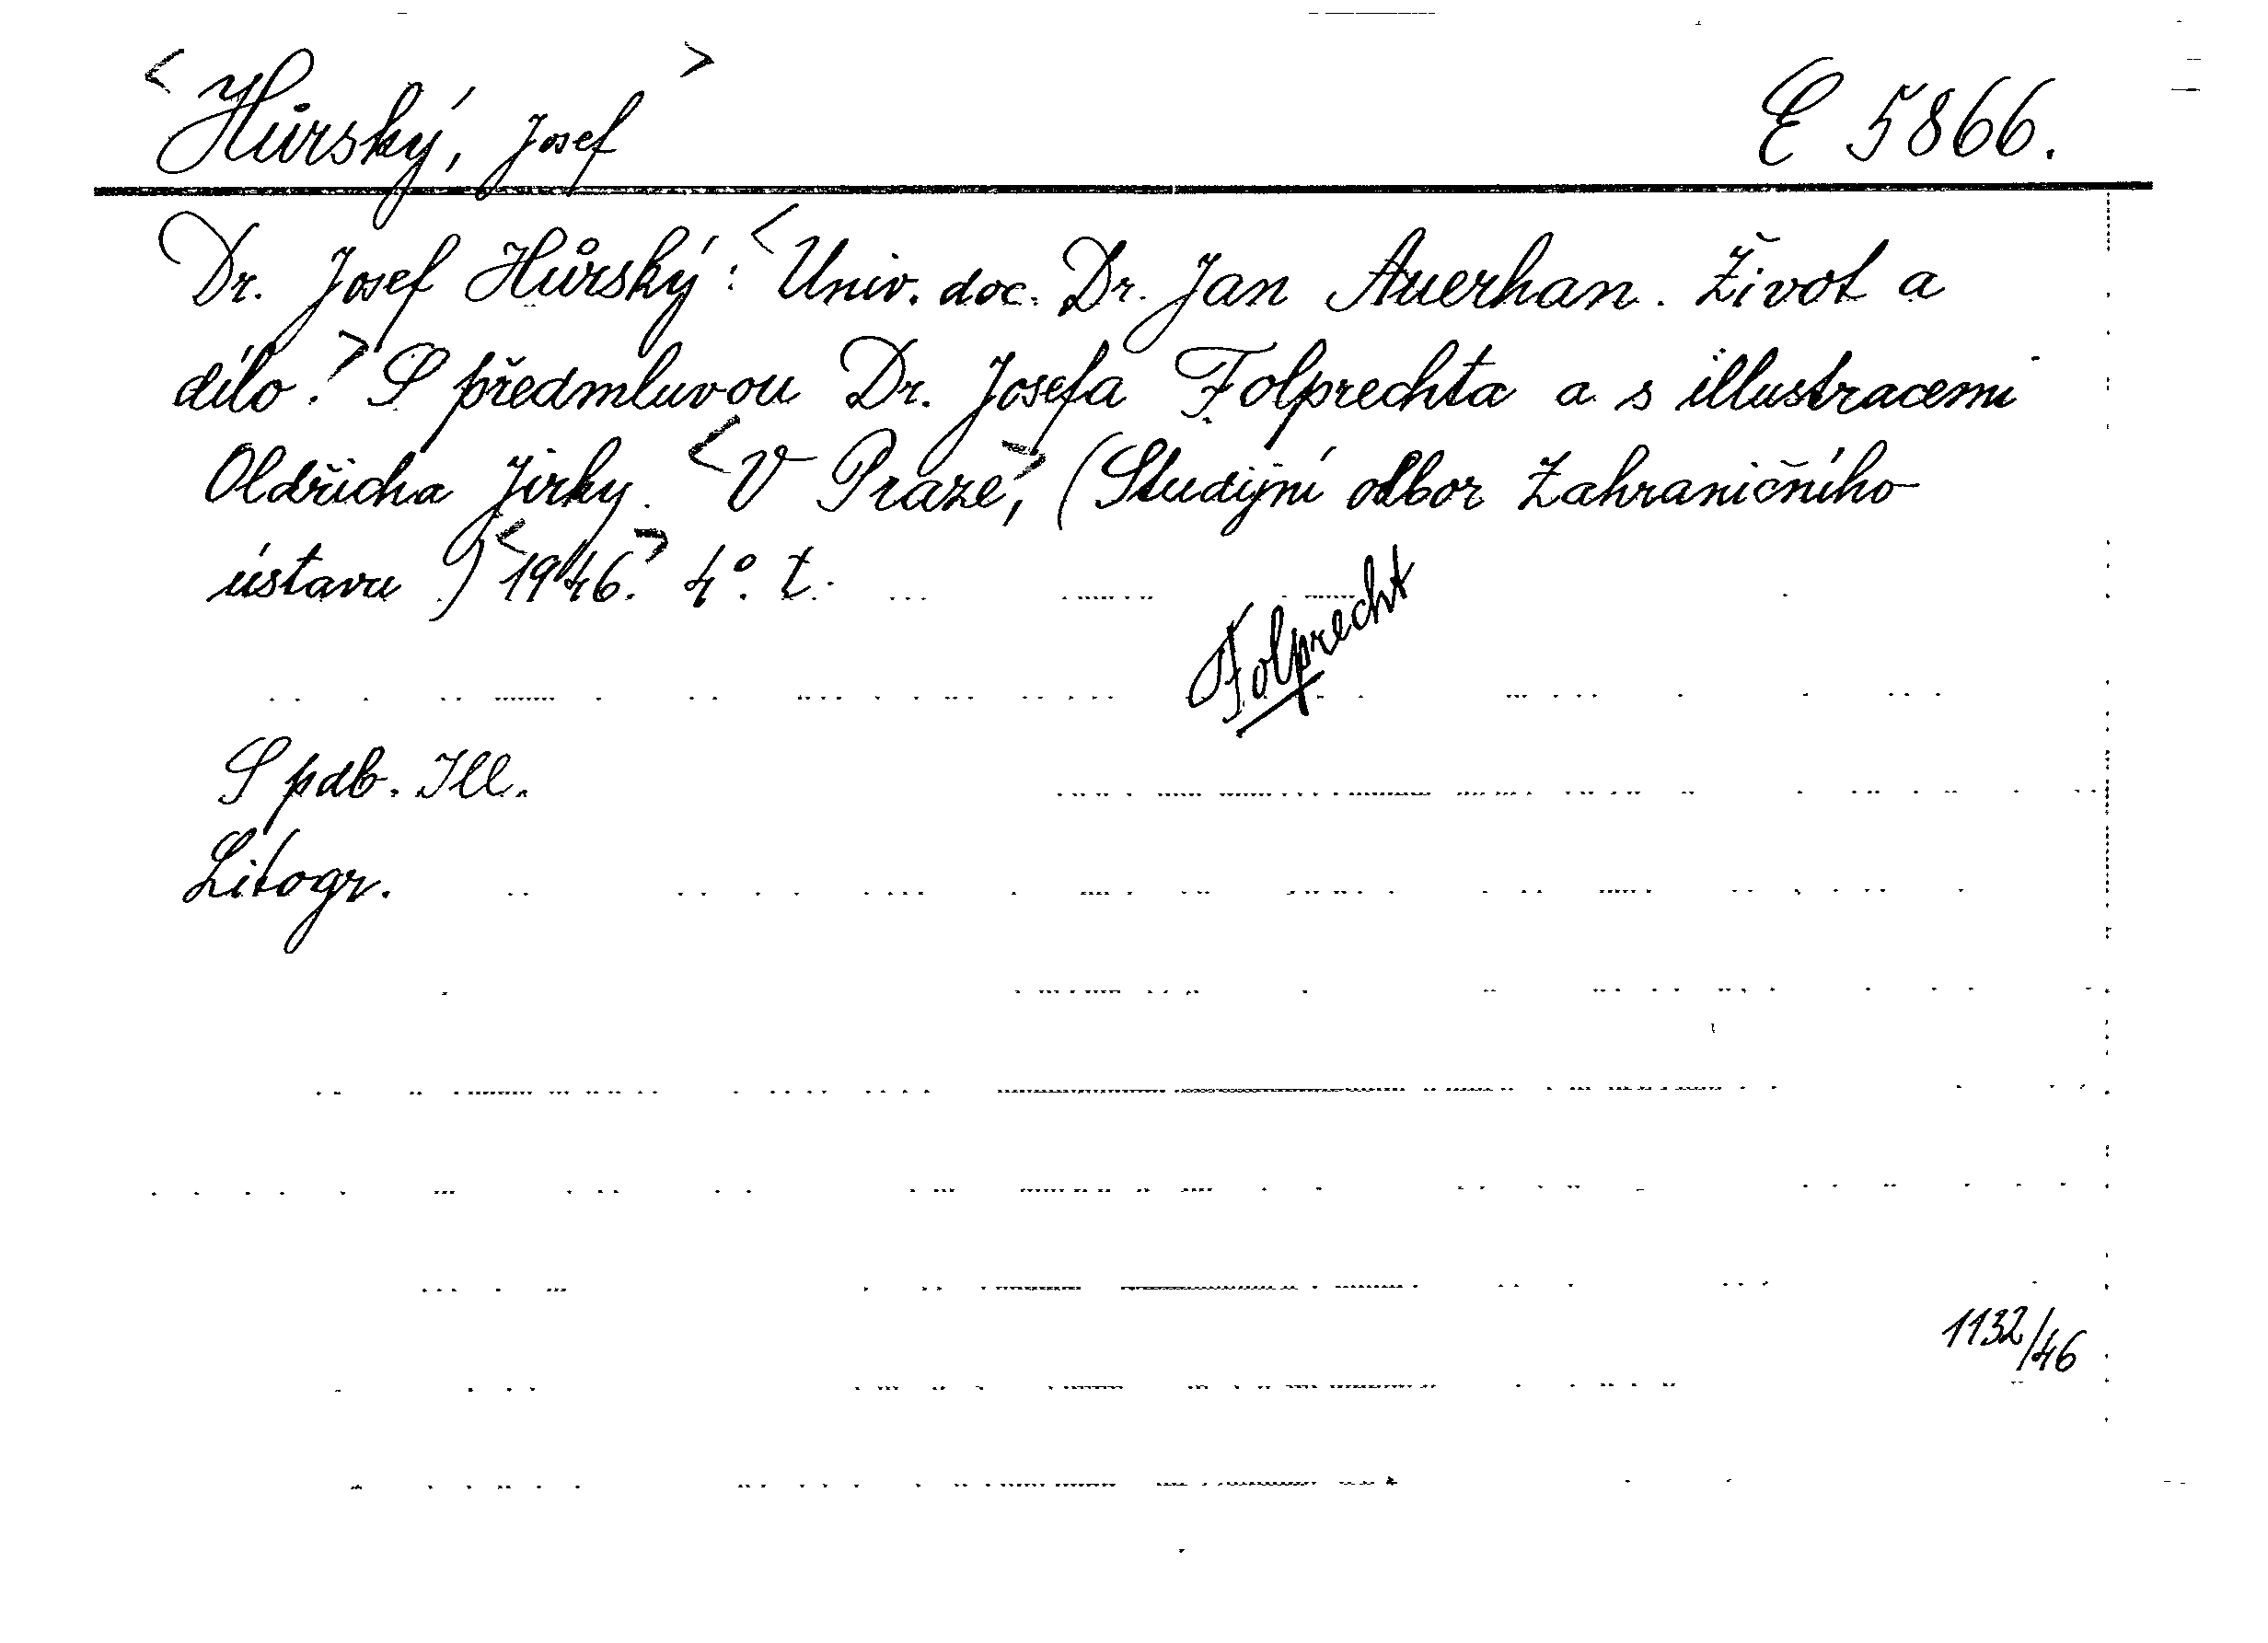 <Hůrský, Josef> E 5866.
Dr. Josef Hůrský: <Univ. doc. Dr. Jan Auerhan. Život a
dílo.> S předmluvou Dr. Josefa Folprechta a s illustracemi
Oldřicha Jirky. <V Praze,> (Studijní odbor Zahraničního
ústavu) <1946.> 4°. t.
Folprecht
S pdb. Ill.
Litogr.
1132/46